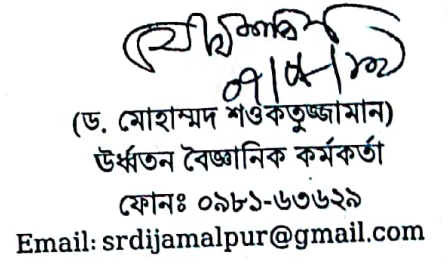 (ড. মোহাম্মদ শওকতুজ্জামান)
উর্ধ্বতন বৈজ্ঞানিক কর্মকর্তা
ফোনঃ ০৯৮১-৬৩৬২৯
Email: srdijamalpur@gmail.com